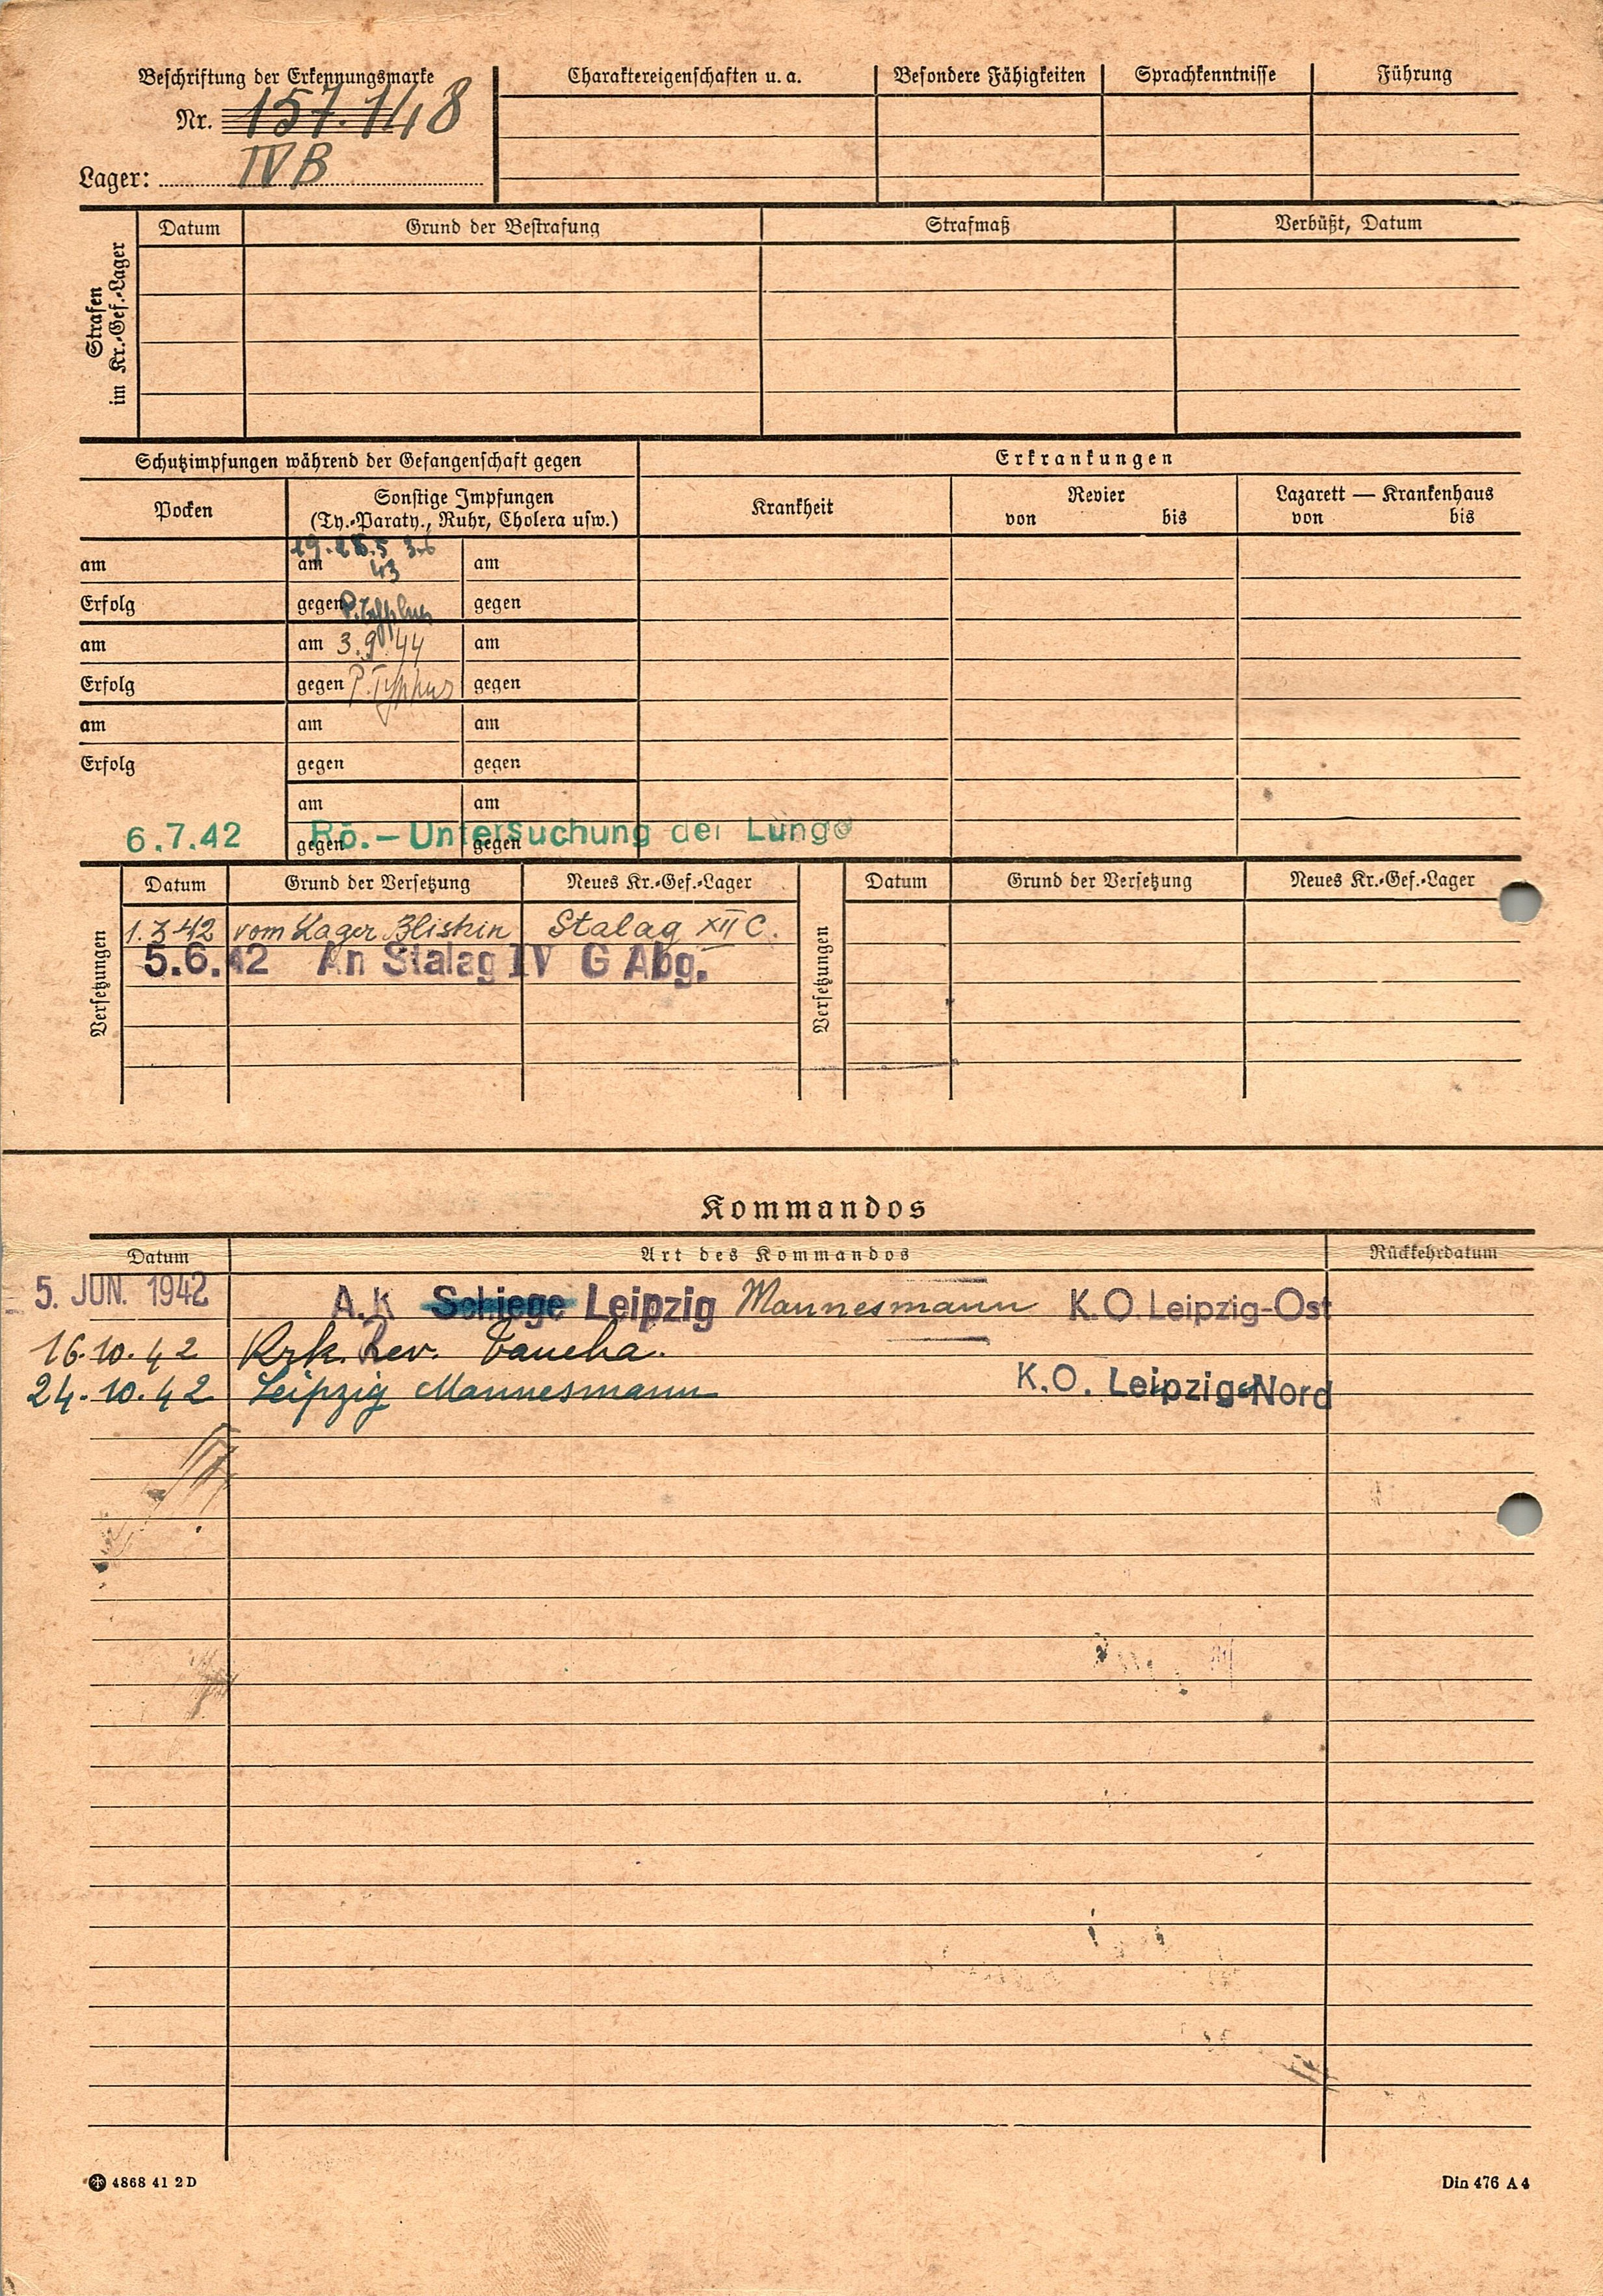 Beschriftung der Erkennungsmarke
Nr. 157.148
Lager: IV B
Charaktereigenschaften u. a.
Besondere Fähigkeiten
Sprachkenntnisse
Führung
Strafen
im Kr.-Gef.-Lager
Datum
Grund der Bestrafung
Strafmaß
Verbüßt, Datum
Schutzimpfungen während der Gefangenschaft gegen
Erkrankungen
Pocken
Sonstige Impfungen
(Ty.-Paraty., Ruhr, Cholera usw.)
Krankheit
Revier
von bis
Lazarett — Krankenhaus
von bis
am am 43 am
Erfolg gegen P. Typhus gegen
am am 3.9.44 am
Erfolg gegen P. Typhus gegen
am am am
Erfolg gegen gegen
am am
6.7.42 Rö.-Untersuchung der Lunge
gegen gegen
Versetzungen
Datum Grund der Versetzung Neues Kr.-Gef.-Lager
1.3.42 vom Lager Stalag XII C.
5.6.42 An Stalag IV G Abg.
Versetzungen
Datum Grund der Versetzung Neues Kr.-Gef.-Lager
Kommandos
Datum Art des Kommandos Rückkehrdatum
5. JUN. 1942 A.K Schiege Leipzig Mannesmann K.O. Leipzig-Ost
16.10.42 Krk. Rev. Taucha.
24.10.42 Leipzig Mannesmann K.O. Leipzig-Nord
4868 41 2 D
Din 476 A 4